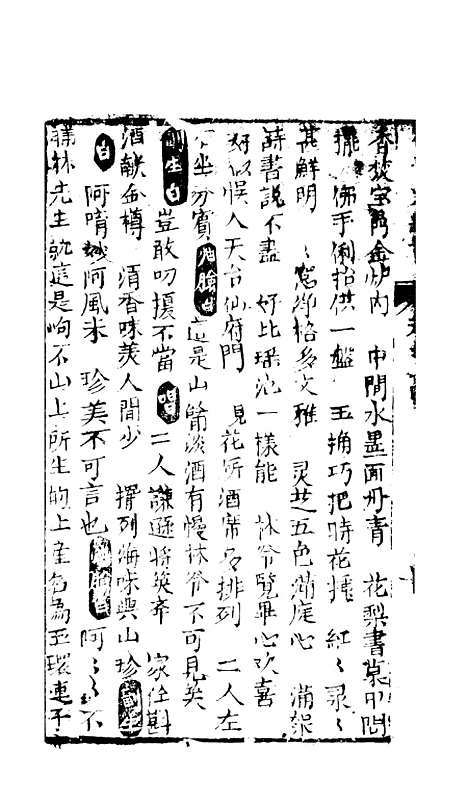 香焚宝門金炉内　中間水墨画丹青　花梨書案中間
擺　佛手俐指供一盤　玉瓶巧把時花插　紅〻录〻
甚鮮明　〻窓淨格多文雅　灵芝五色滿庭心　滿架
詩書說不盡　好比瑶池一樣能　林爷覽畢心欢喜
好似悮人天台仙府門　見花所酒席多排列　二人左
右坐分賓　這是山餚淡酒有慢林爷不可見笑
副生白　豈敢叨擾不當　唱　二人謙遜將筵奔　家任斟
酒献金樽　清香味美人間少　擺列海味與山珍　副生
白　阿唷妙阿風米　珍美不可言也　阿〻〻不
瞒林先生就這是峋不山上所生的上產名為玉環連子